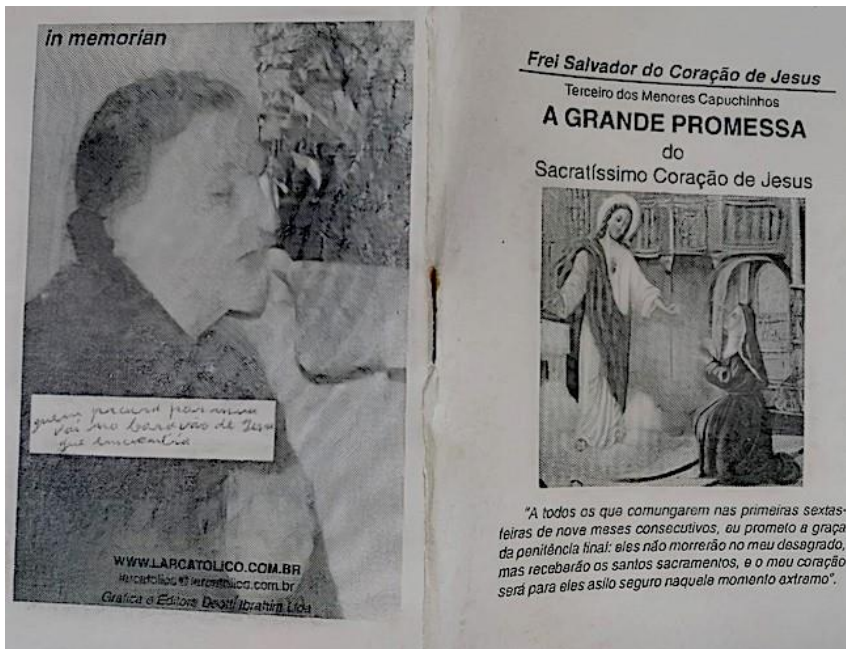 in memorian
quem procura por mim
vai no coração de Jesus
que encontra
WWW.LARCATOLICO.COM.BR
larcatolico@larcatolico.com.br
Gráfica e Editora Deotti Ibrahim Ltda
Frei Salvador do Coração de Jesus
Terceiro dos Menores Capuchinhos
A GRANDE PROMESSA
do
Sacratíssimo Coração de Jesus
"A todos os que comungarem nas primeiras sextas-
feiras de nove meses consecutivos, eu prometo a graça
da penitência final: eles não morrerão no meu desagrado,
mas receberão os santos sacramentos, e o meu coração
será para eles asilo seguro naquele momento extremo".